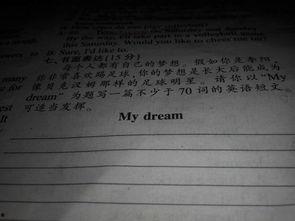 By the way,
this Saturday. Would you like to cheer me on?
wers to 五. Sure, I'd like to.
七、书面表达(15分)
每个人都有自己的梦想。假如你是李阳,
many 你非常喜欢踢足球,你的梦想是长大后能成为
for 像贝克汉姆那样的足球明星。请你以"My
dream"为题写一篇不少于70词的英语短文。
est 可适当发挥。
My dream